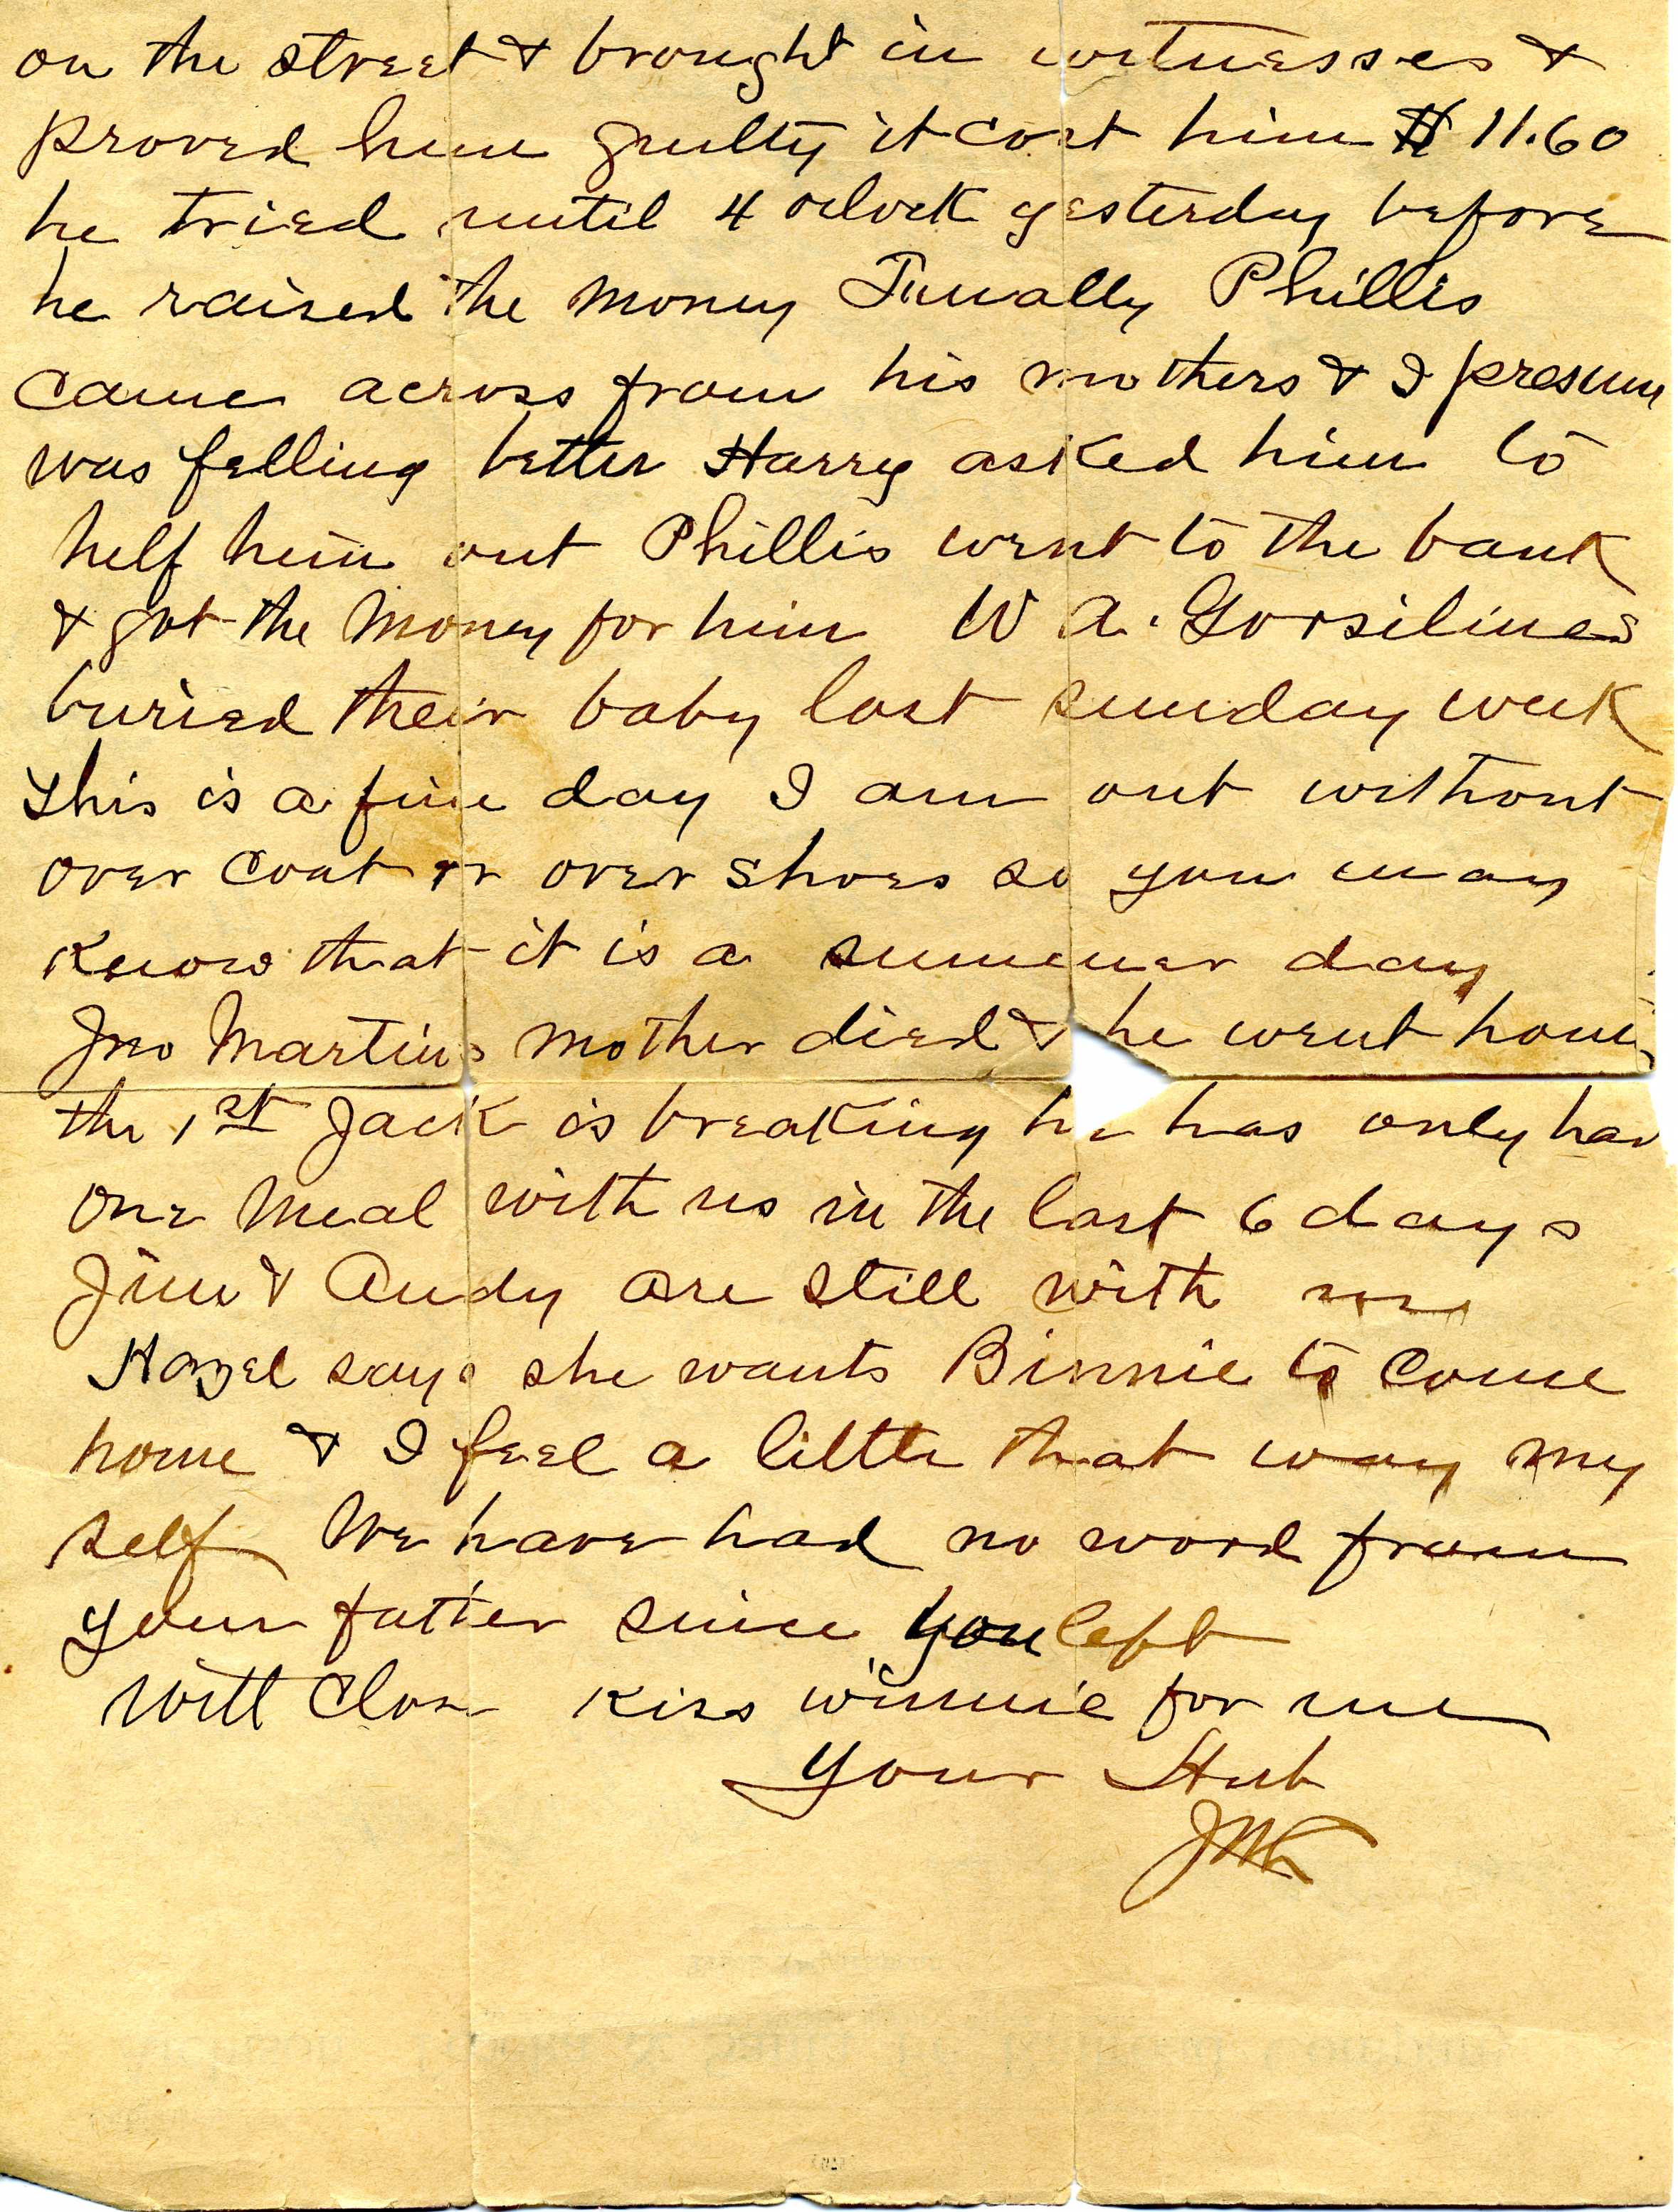 on the street & brought in witnesses &
proved him guilty it cost him $ 11.60
he tried until 4 oclock yesterday before
he raised the money Finally Phillis
came across from his mothers & I presume
was felling better Harry asked him to
help him out Phillis went to the bank
& got the money for him W A. Gorsilines
buried their baby last sunday week
This is a fine day I am out without
over coat or over shoes so you may
know that it is a summer day
Jno Martins mother died & he went home
the 1st Jack is breaking he has only had
one meal with us in the last 6 days
Jim & Andy are still with me
Hazel says she wants Binnie to come
home & I feel a little that way my
self We have had no word from
your father since you left
Will close Kiss Winnie for me
Your Hub